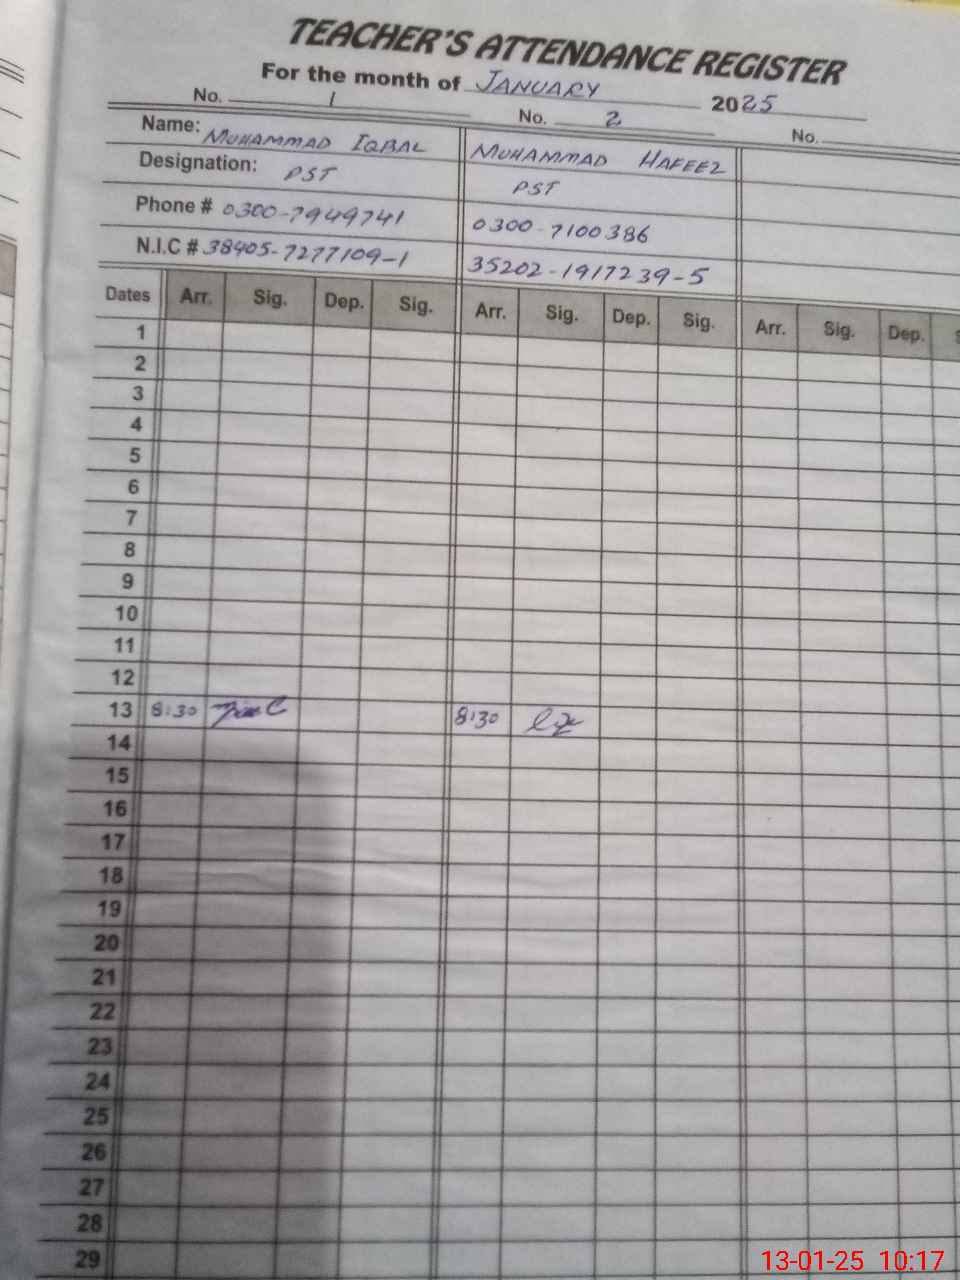 TEACHER'S ATTENDANCE REGISTER
For the month of JANUARY 2025
No. 1 No. 2 No.
Name: MUHAMMAD IQBAL MUHAMMAD HAFEEZ
Designation: PST PST
Phone # 0300-7949741 0300-7100386
N.I.C # 38405-7277109-1 35202-1917239-5
Dates Arr. Sig. Dep. Sig. Arr. Sig. Dep. Sig. Arr. Sig. Dep. S
1
2
3
4
5
6
7
8
9
10
11
12
13 8:30 8:30
14
15
16
17
18
19
20
21
22
23
24
25
26
27
28
29
13-01-25 10:17